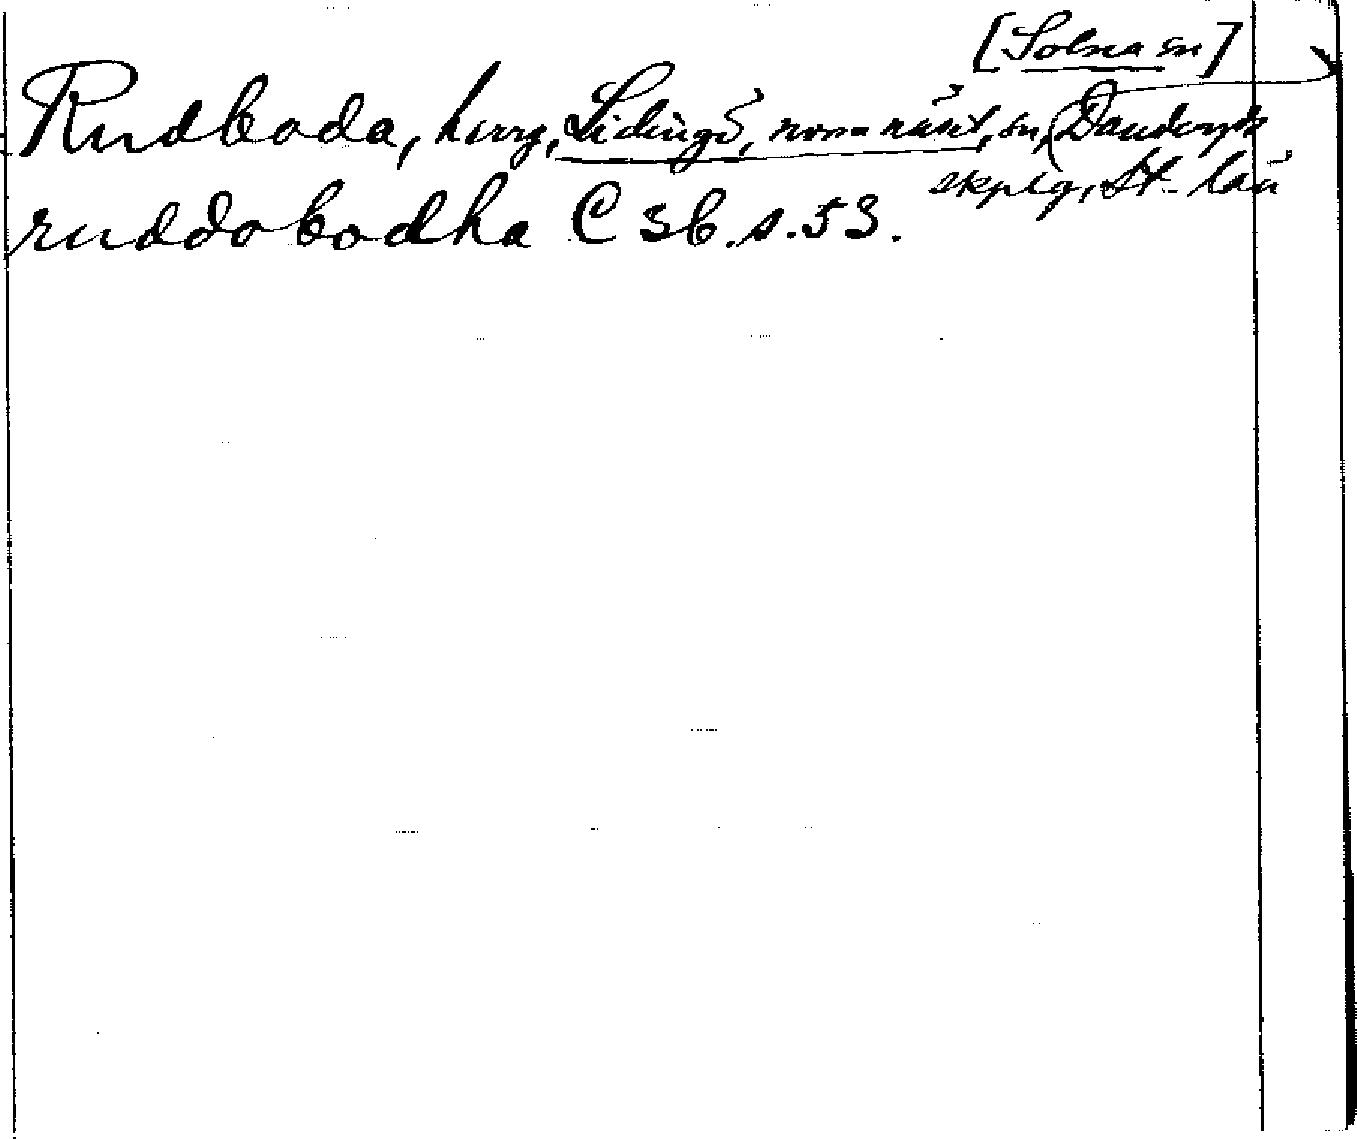 [Solna sn]
Rudboda, herrg, Lidingö, sn, Danderyds
skplg, St. län
ruddobodha C 36. s. 53.